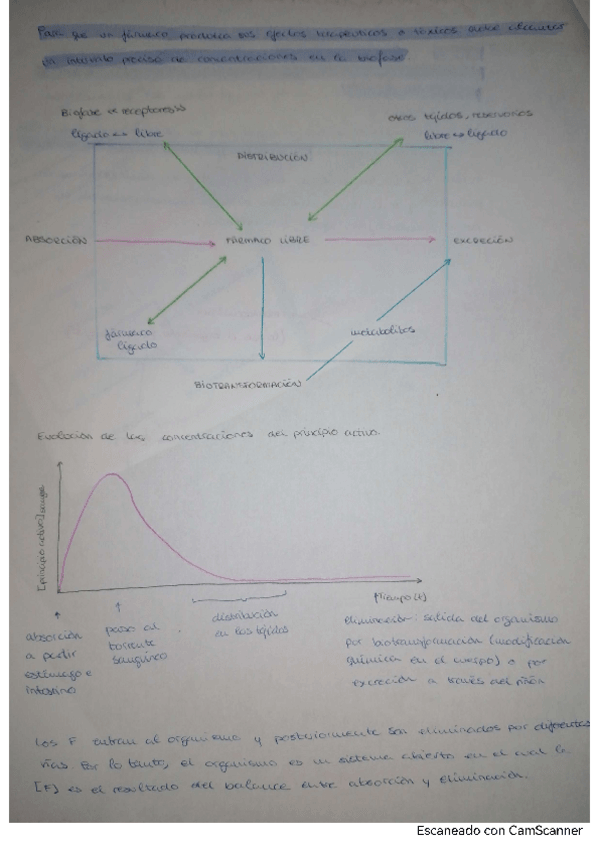 Para que un fármaco produzca sus efectos terapéuticos o tóxicos debe alcanzar
un intervalo preciso de concentraciones en la biofase.
Biofase receptores
ligado ↔ libre
otros tejidos, reservorios
libre ↔ ligado
DISTRIBUCIÓN
ABSORCIÓN
FÁRMACO LIBRE
EXCRECIÓN
fármaco
ligado
metabolitos
BIOTRANSFORMACIÓN
Evolución de las concentraciones del principio activo.
[principio activo] sangre
Tiempo (t)
absorción
a partir
estómago e
intestino
paso al
torrente
sanguíneo
distribución
en los tejidos
eliminación: salida del organismo
por biotransformación (modificación
química en el cuerpo) o por
excreción a través del riñón
Los F entran al organismo y posteriormente son eliminados por diferentes
vías. Por lo tanto, el organismo es un sistema abierto en el cual la
[F] es el resultado del balance entre absorción y eliminación.
Escaneado con CamScanner